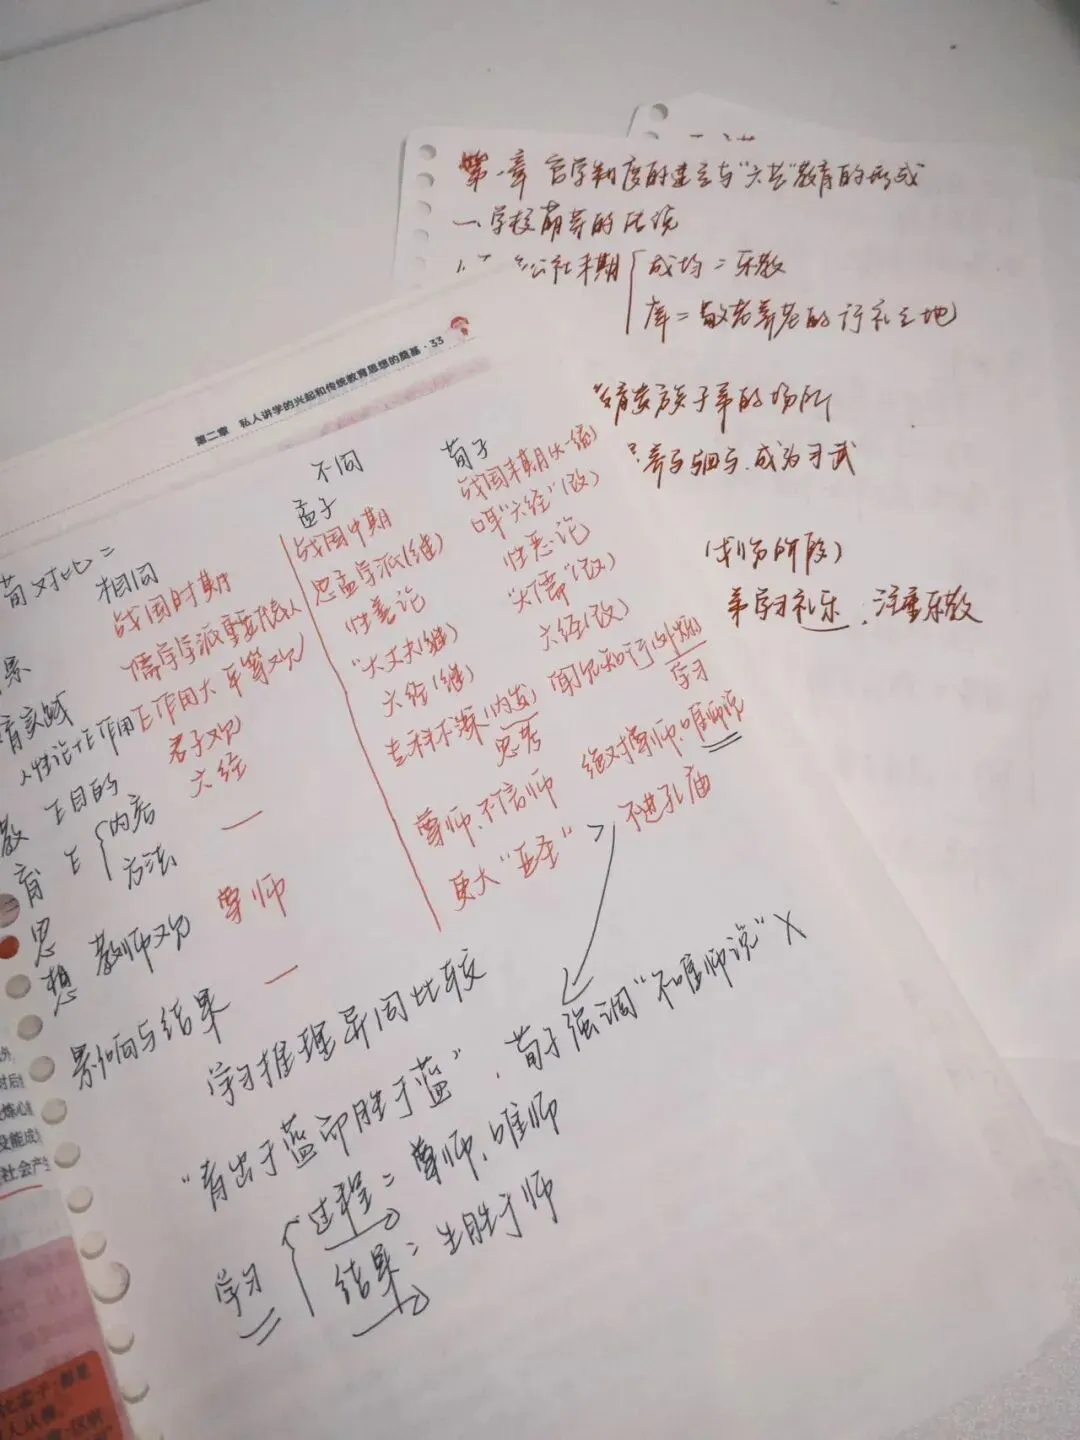 第一章 官学制度的建立与“六艺”教育的形成
一、学校萌芽的传说
公社末期 成均=乐教
庠=敬老养老的行礼之地
贵族子弟的场所
成为习武
弟学习礼乐,注重乐教
第二章 私人讲学的兴起和传统教育思想的奠基·33
荀对比=
相同
不同
孟子
荀子
战国时期
战国中期
战国末期
儒学学派重要代表人
思孟学派(继)
“六经”(改)
性善论
性恶论
人性论在作用
E作用大 平等观
“大丈夫(继)
“大儒”(改)
E目的
君子观
六经(继)
六经(改)
E 内容
六经
方法
一
(内发)
思考
闻见知行(外烁)
学习
教师观
尊师
尊师、不信师
绝对尊师、唯师说
影响与结果
一
更大“亚圣”
不进孔庙
教
育
思
想
学习推理异同比较
“青出于蓝而胜于蓝”,荀子强调“不唯师说”X
学习
过程=尊师、唯师
结果=生胜于师
社会产生